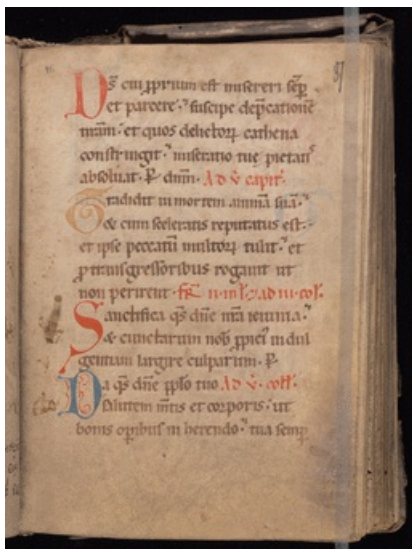 87
D s̄ cui ꝓprium est misereri sēp
et parcere. suscipe dep̄cationē
nr̄am. et quos delictoꝝ cathena
constringit. miseratio tuę pietatis
absoluat. P̄ dnm̄. Ad v̄ capit̄.
Tradidit in mortem animā suā.
& cum sceleratis reputatus est.
et ipse peccatū multoꝝ tulit. et
ꝓ transgressoribus rogauit ut
non perirent.
Sanctifica q̄s dn̄e nr̄a ieiunia.
& cunctarum nob̄ ꝓpici' indul
gentiam largire culparum. P̄
Da q̄s dn̄e pp̄lo tuo Ad v̄. coll̄.
salutem m̄tis et corporis. ut
bonis oꝑibus inherendo. tua semꝑ